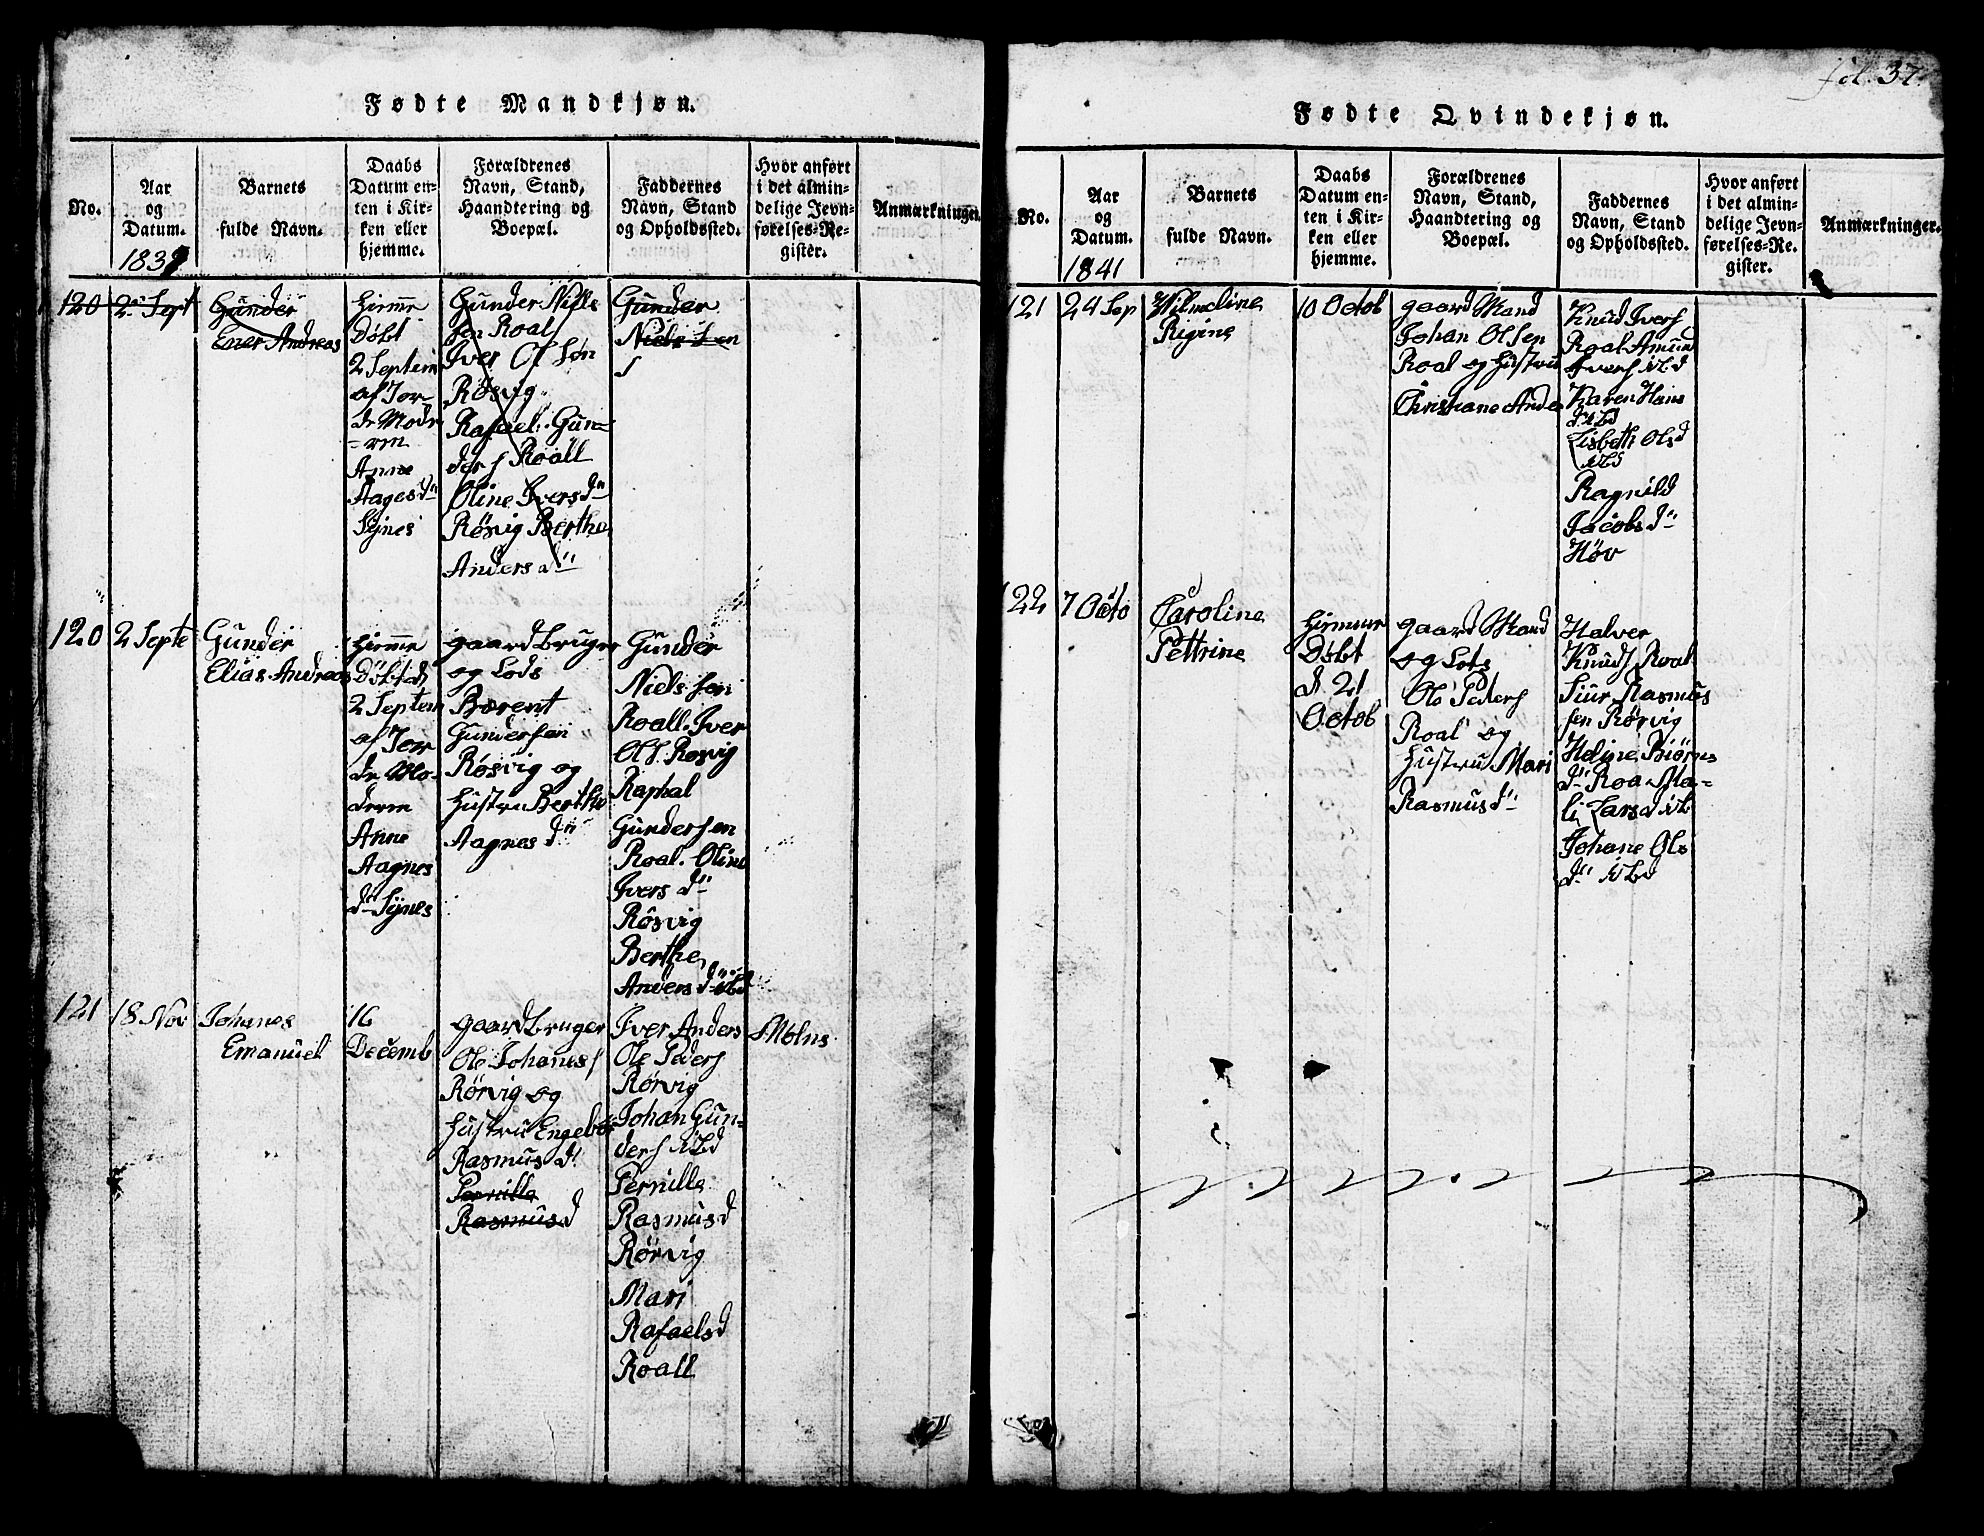 fol. 37.
Fødte Mandkjøn.
No.
Aar
og
Datum.
1839
Barnets
fulde Navn.
Daabs
Datum en-
ten i Kir-
ken eller
hjemme.
Forældrenes
Navn, Stand,
Haandtering og
Boepæl.
Faddernes
Navn, Stand
og Opholdssted.
Hvor anført
i det almin-
delige Jevn-
førelses-Re-
gister.
Anmærkninger.
120
2 Sept
Gunder
Ener Andreas
Hiemme
Døbt
2 Septem
af Jor-
de Modr
=ren
Anne
Aagesdr
Synes
Gunder Niels
sen Roal
Iver Ol søn
Røsvig
Rafael. Gun=
ders Roall
Oline Iversdr
Rösvig Berthe
Andersdr
Gunder
Niels sen
120
2 Septe
Gunder
Elias Andreas
Hiemme
Døbt d
2 Septem
af Jor
de Mo-
deren
Anne
Aagnes
dr Synes
gaardbruger
og Lods
Bærent
Gundersen
Røsvig og
Hustru Berthe
Aagnes dr
Gunder
Niels sen
Roall. Iver
Ols. Rosvig
Raphal
Gundersen
Roal. Oline
Ivers dr
Rösvig
Berthe
Anders dr ibd
121
18 Nov
Johanes
Emanuel
16
Decemb
gaardbruger
Ole Johaness
Rörvig og
Hustru Engebor
Rasmus d.
Pernille
Rasmusd
Iver Anders
Ole Peders
Rørvig
Johan Gun=
ders ibd
Pernille
Rasmusd
Rörvig
Mari
Rafaelsd
Roall
Fødte Qvindekjøn.
No.
Aar
og
Datum.
1841
Barnets
fulde Navn.
Daabs
Datum en-
ten i Kir-
ken eller
hjemme.
Forældrenes
Navn, Stand,
Haandtering og
Boepæl.
Faddernes
Navn, Stand
og Opholdssted.
Hvor anført
i det almin-
delige Jevn-
førelses-Re-
gister.
Anmærkninger.
121
24 Sep
Wilmeline
Rigine
10 Octob
gaard Mand
Johan Olsen
Roal og Hustru
Christiane Ande
Knud Ivers
Roal Amund
Ivers ibd
Karen Hans
d ibd
Lisbeth Olsd
ibd
Ragnild
Jacobs dr
Höv
122
7 Octo
Caroline
Pettrine
Hiemmr
Døbt
d 21
Octob
gaard Mand
og Lots
Ole Peders
Roal og
Hustru Mari
Rasmusdr
Halver
Knuds Roal
Siur Rasmus
sen Rørvig
Heline Biørns
dr Roa Ma=
li Larsd ibd
Johane Ols
dr ibd